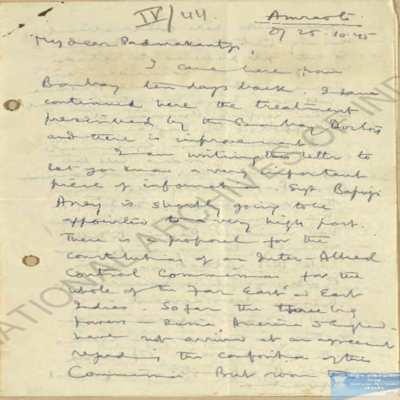 IV/44
Amraoti
D/ 25.10.45
My dear Padmakantji,
I came here from
Bombay ten days back. I have
continued here the treatment
prescribed by the Bombay Doctors
and there is improvement.
I am writing this letter to
let you know a very important
piece of information. Syt. Bapuji
Aney is shortly going to be
appointed to a very high post.
There is proposal for the
constitution of an Inter-Allied
Control Commission for the
whole of the Far East &amp; East
Indies. So far the three big
Powers - Russia, America &amp; England
have not arrived at an agreement
regarding the composition of the
Commission. But
NATIONAL ARCHIVES OF IND